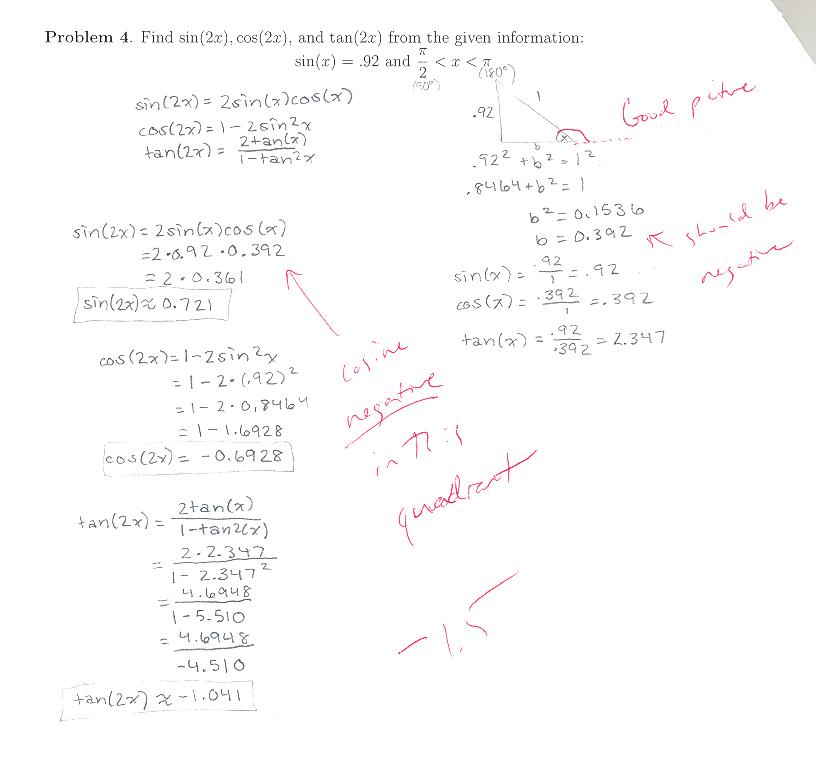 Problem 4. Find sin(2x), cos(2x), and tan(2x) from the given information:
sin(x) = .92 and π/2 < x < π
(90°) (180°)
sin(2x) = 2sin(x)cos(x)
cos(2x) = 1 - 2sin²x
tan(2x) = 2tan(x)/1-tan²x
.92
1
x
b
Good pitre
.92² + b² = 1²
.8464 + b² = 1
b² = 0.1536
b = 0.392
should be
negative
sin(x) = .92/1 = .92
cos(x) = .392/1 = .392
tan(x) = .92/.392 = 2.347
sin(2x) = 2sin(x)cos(x)
= 2·0.92·0.392
= 2·0.361
sin(2x) ≈ 0.721
cosine
negative
in this
quadrant
cos(2x) = 1-2sin²x
= 1-2·(.92)²
= 1-2·0.8464
= 1-1.6928
cos(2x) = -0.6928
tan(2x) = 2tan(x)/1-tan2(x)
= 2·2.347/1-2.347²
= 4.6948/1-5.510
= 4.6948/-4.510
tan(2x) ≈ -1.041
-1.5